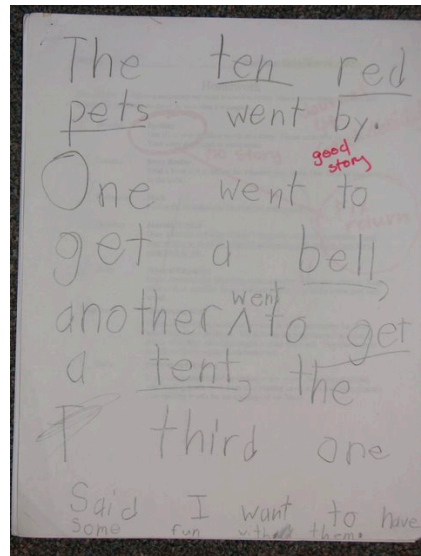 The ten red
pets went by.
good
story
One went to
get a bell
another ^ went to get
a tent, the
third one
Said I want to have
some fun with them.